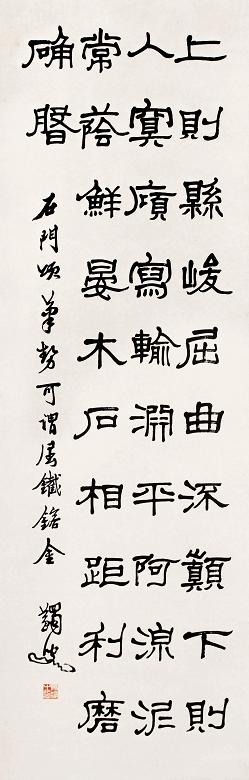 上則縣峻屈曲流顛下則
入冥庼寫輸淵平阿湶泥
常蔭鮮晏木石相距利磨
确磐
石門頌筆勢可謂屈鐵鎔金
蠲叟